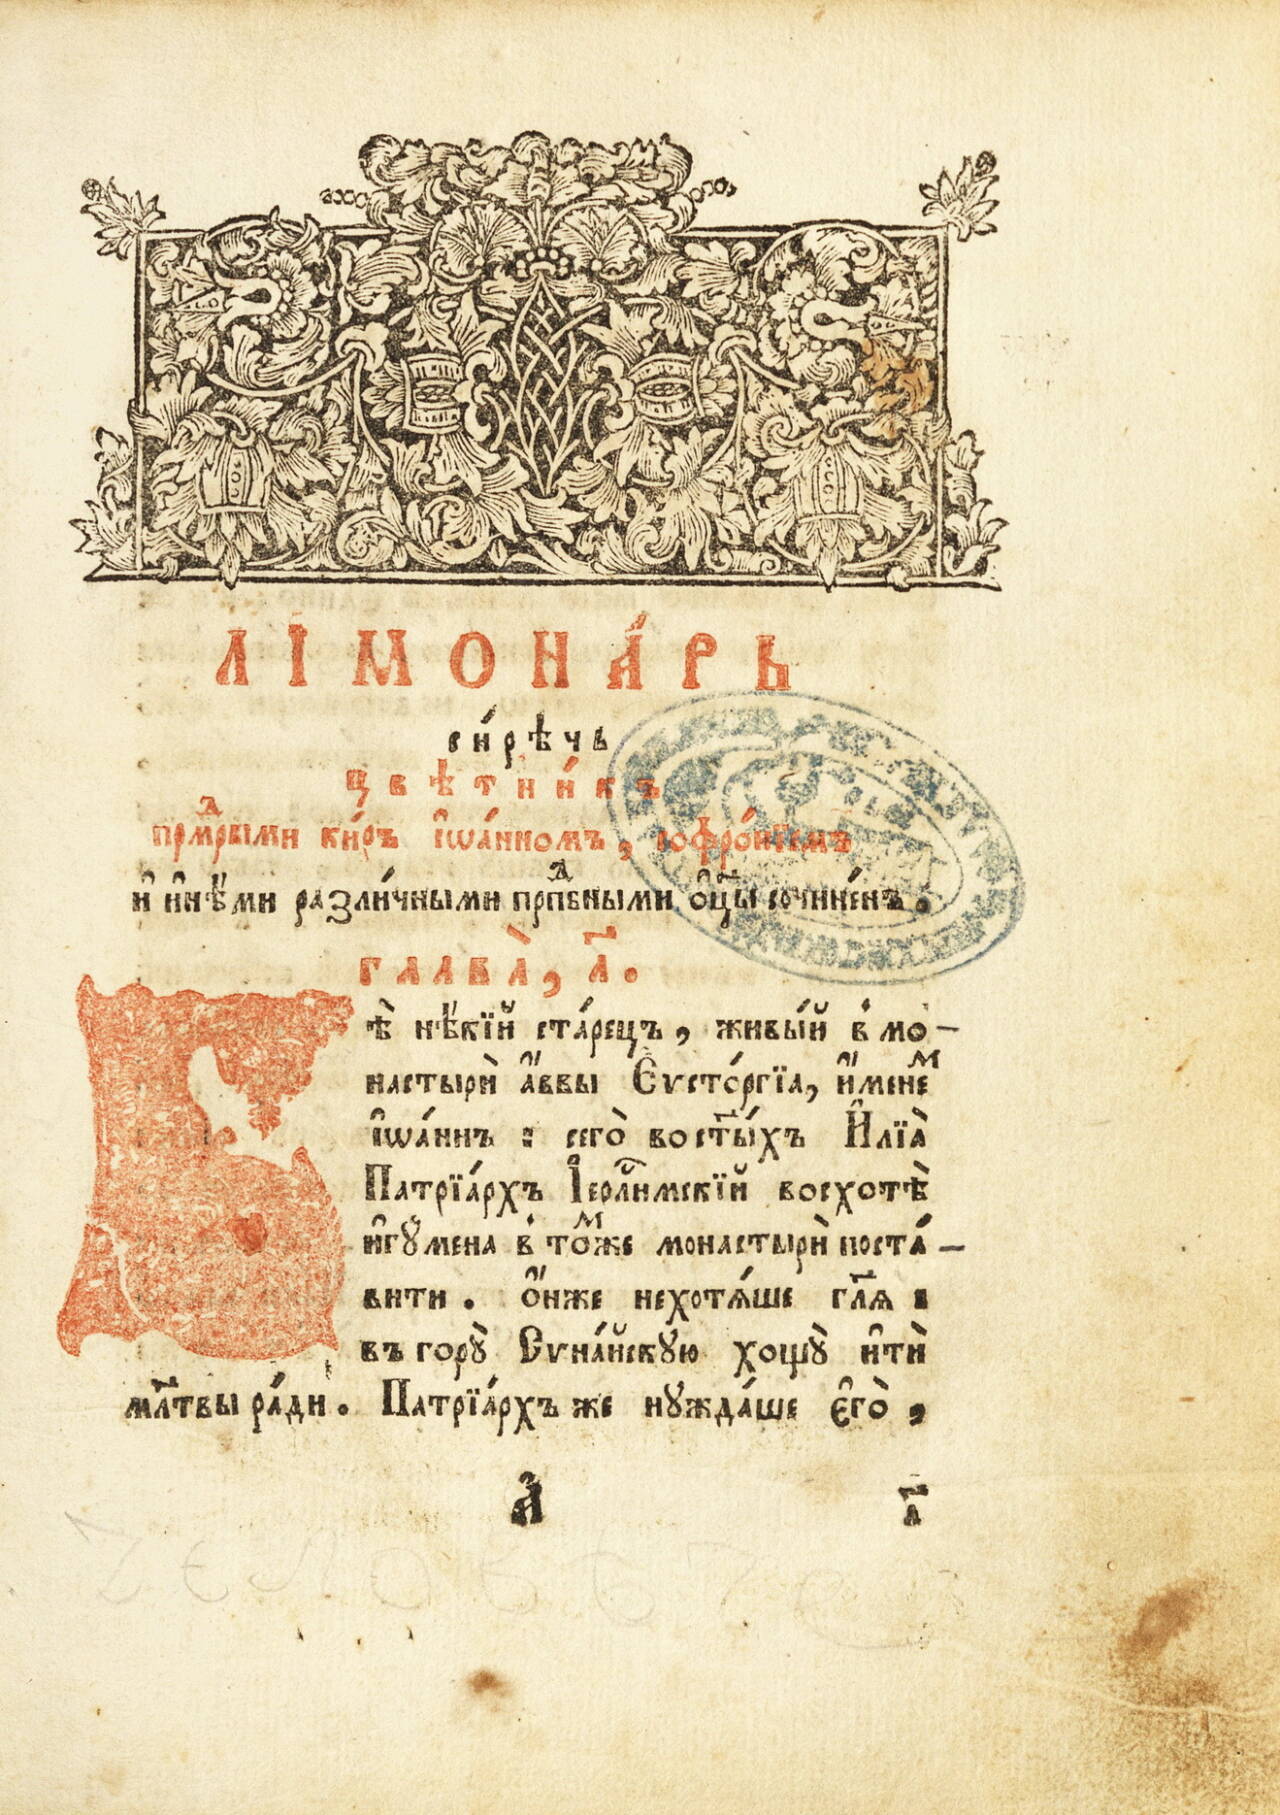 ЛІМОНА́РЬ
си́рѣчь
цвѣтни́къ
прмⷣрыми ки́ръ і҆ѡа́нномъ, софро́нїемъ
и҆ и҆нѣ́ми разли́чными прпⷣбными ѻ҆ц҃ы сочине́нъ.
глава̀, а҃.
Бѣ̀ нѣ́кїй ста́рецъ, живы́й в̾ мо-
настырѝ а҆́ввы Еѵсто́ргїа, и҆́менеⷨ
і҆ѡа́ннъ : сего̀ во ст҃ы́хъ И҆лїа̀
Патрїа́рхъ І҆ерл҃и́мскїй восхотѣ̀
и҆гꙋ́мена в̾ то́ⷨже монастырѝ поста́-
вити. Ѻ҆́нже нехотѧ́ше гл҃ѧ :
въ горꙋ̀ Сѵна́йскꙋю хощꙋ̀ и҆тѝ
мл҃твы ра́ди. Патрїа́рхъ же нꙋжда́ше є҆го̀,
А҃ а҃